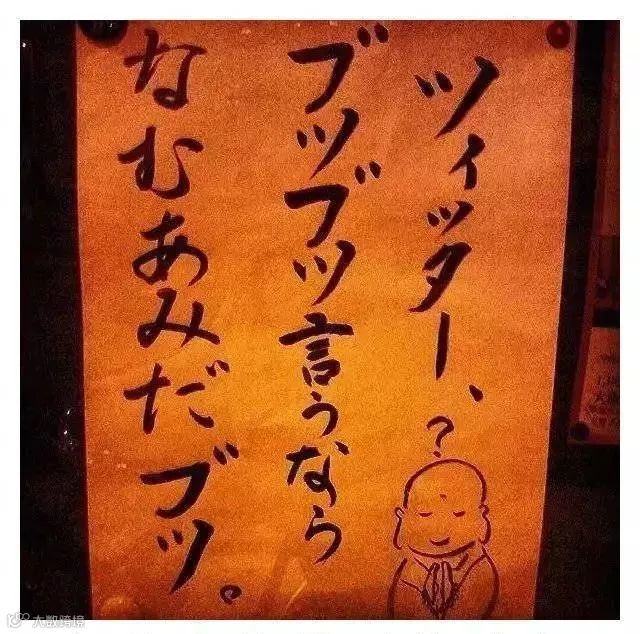 ツイッター、?
ブツブツ言うなら
なむあみだブツ。
大数跨境